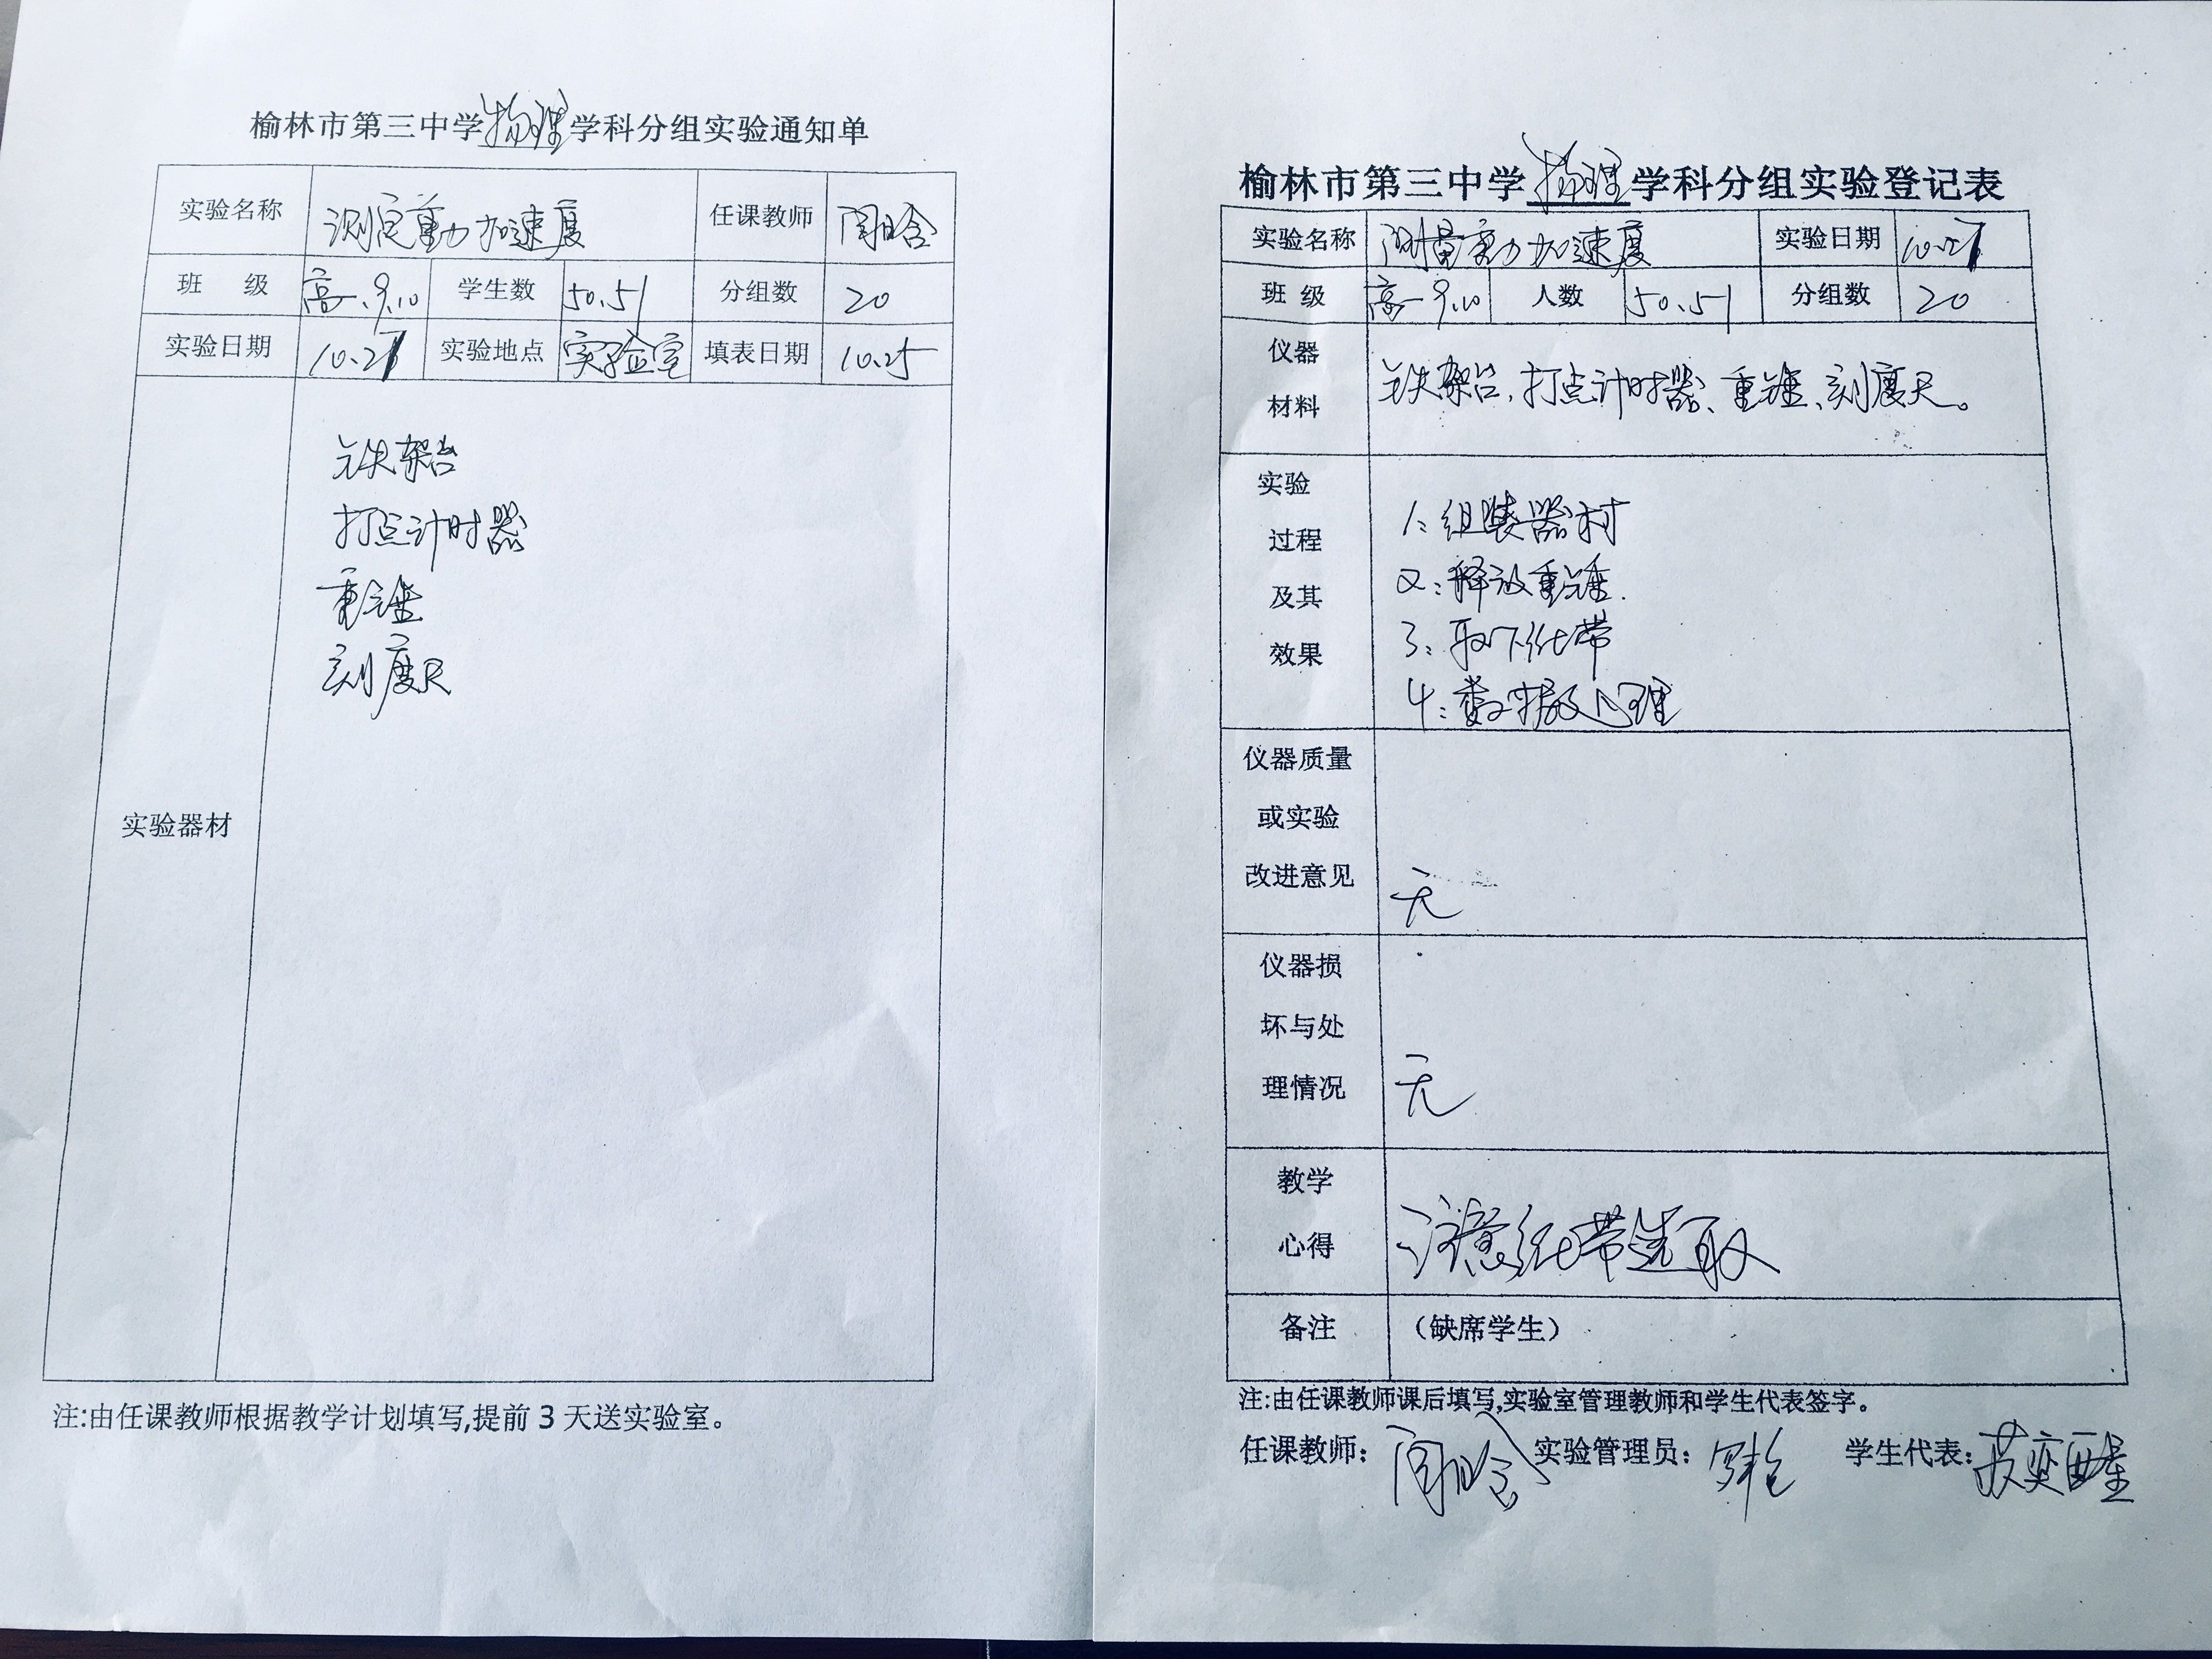 榆林市第三中学物理学科分组实验通知单
实验名称 测定重力加速度 任课教师
班 级 高一.9.10 学生数 50、51 分组数 20
实验日期 实验地点 实验室 填表日期 10.25
实验器材
铁架台
打点计时器
重锤
刻度尺
注:由任课教师根据教学计划填写,提前 3 天送实验室。
榆林市第三中学物理学科分组实验登记表
实验名称 测量重力加速度 实验日期
班 级 高一 9.10 人数 50、51 分组数 20
仪器
材料
铁架台、打点计时器、重锤、刻度尺。
实验
过程
及其
效果
1: 组装器材
2: 释放重锤.
3: 取下纸带
4: 数据处理
仪器质量
或实验
改进意见
无
仪器损
坏与处
理情况
无
教学
心得
注意纸带选取
备注 （缺席学生）
注:由任课教师课后填写,实验室管理教师和学生代表签字。
任课教师: 实验管理员: 学生代表: